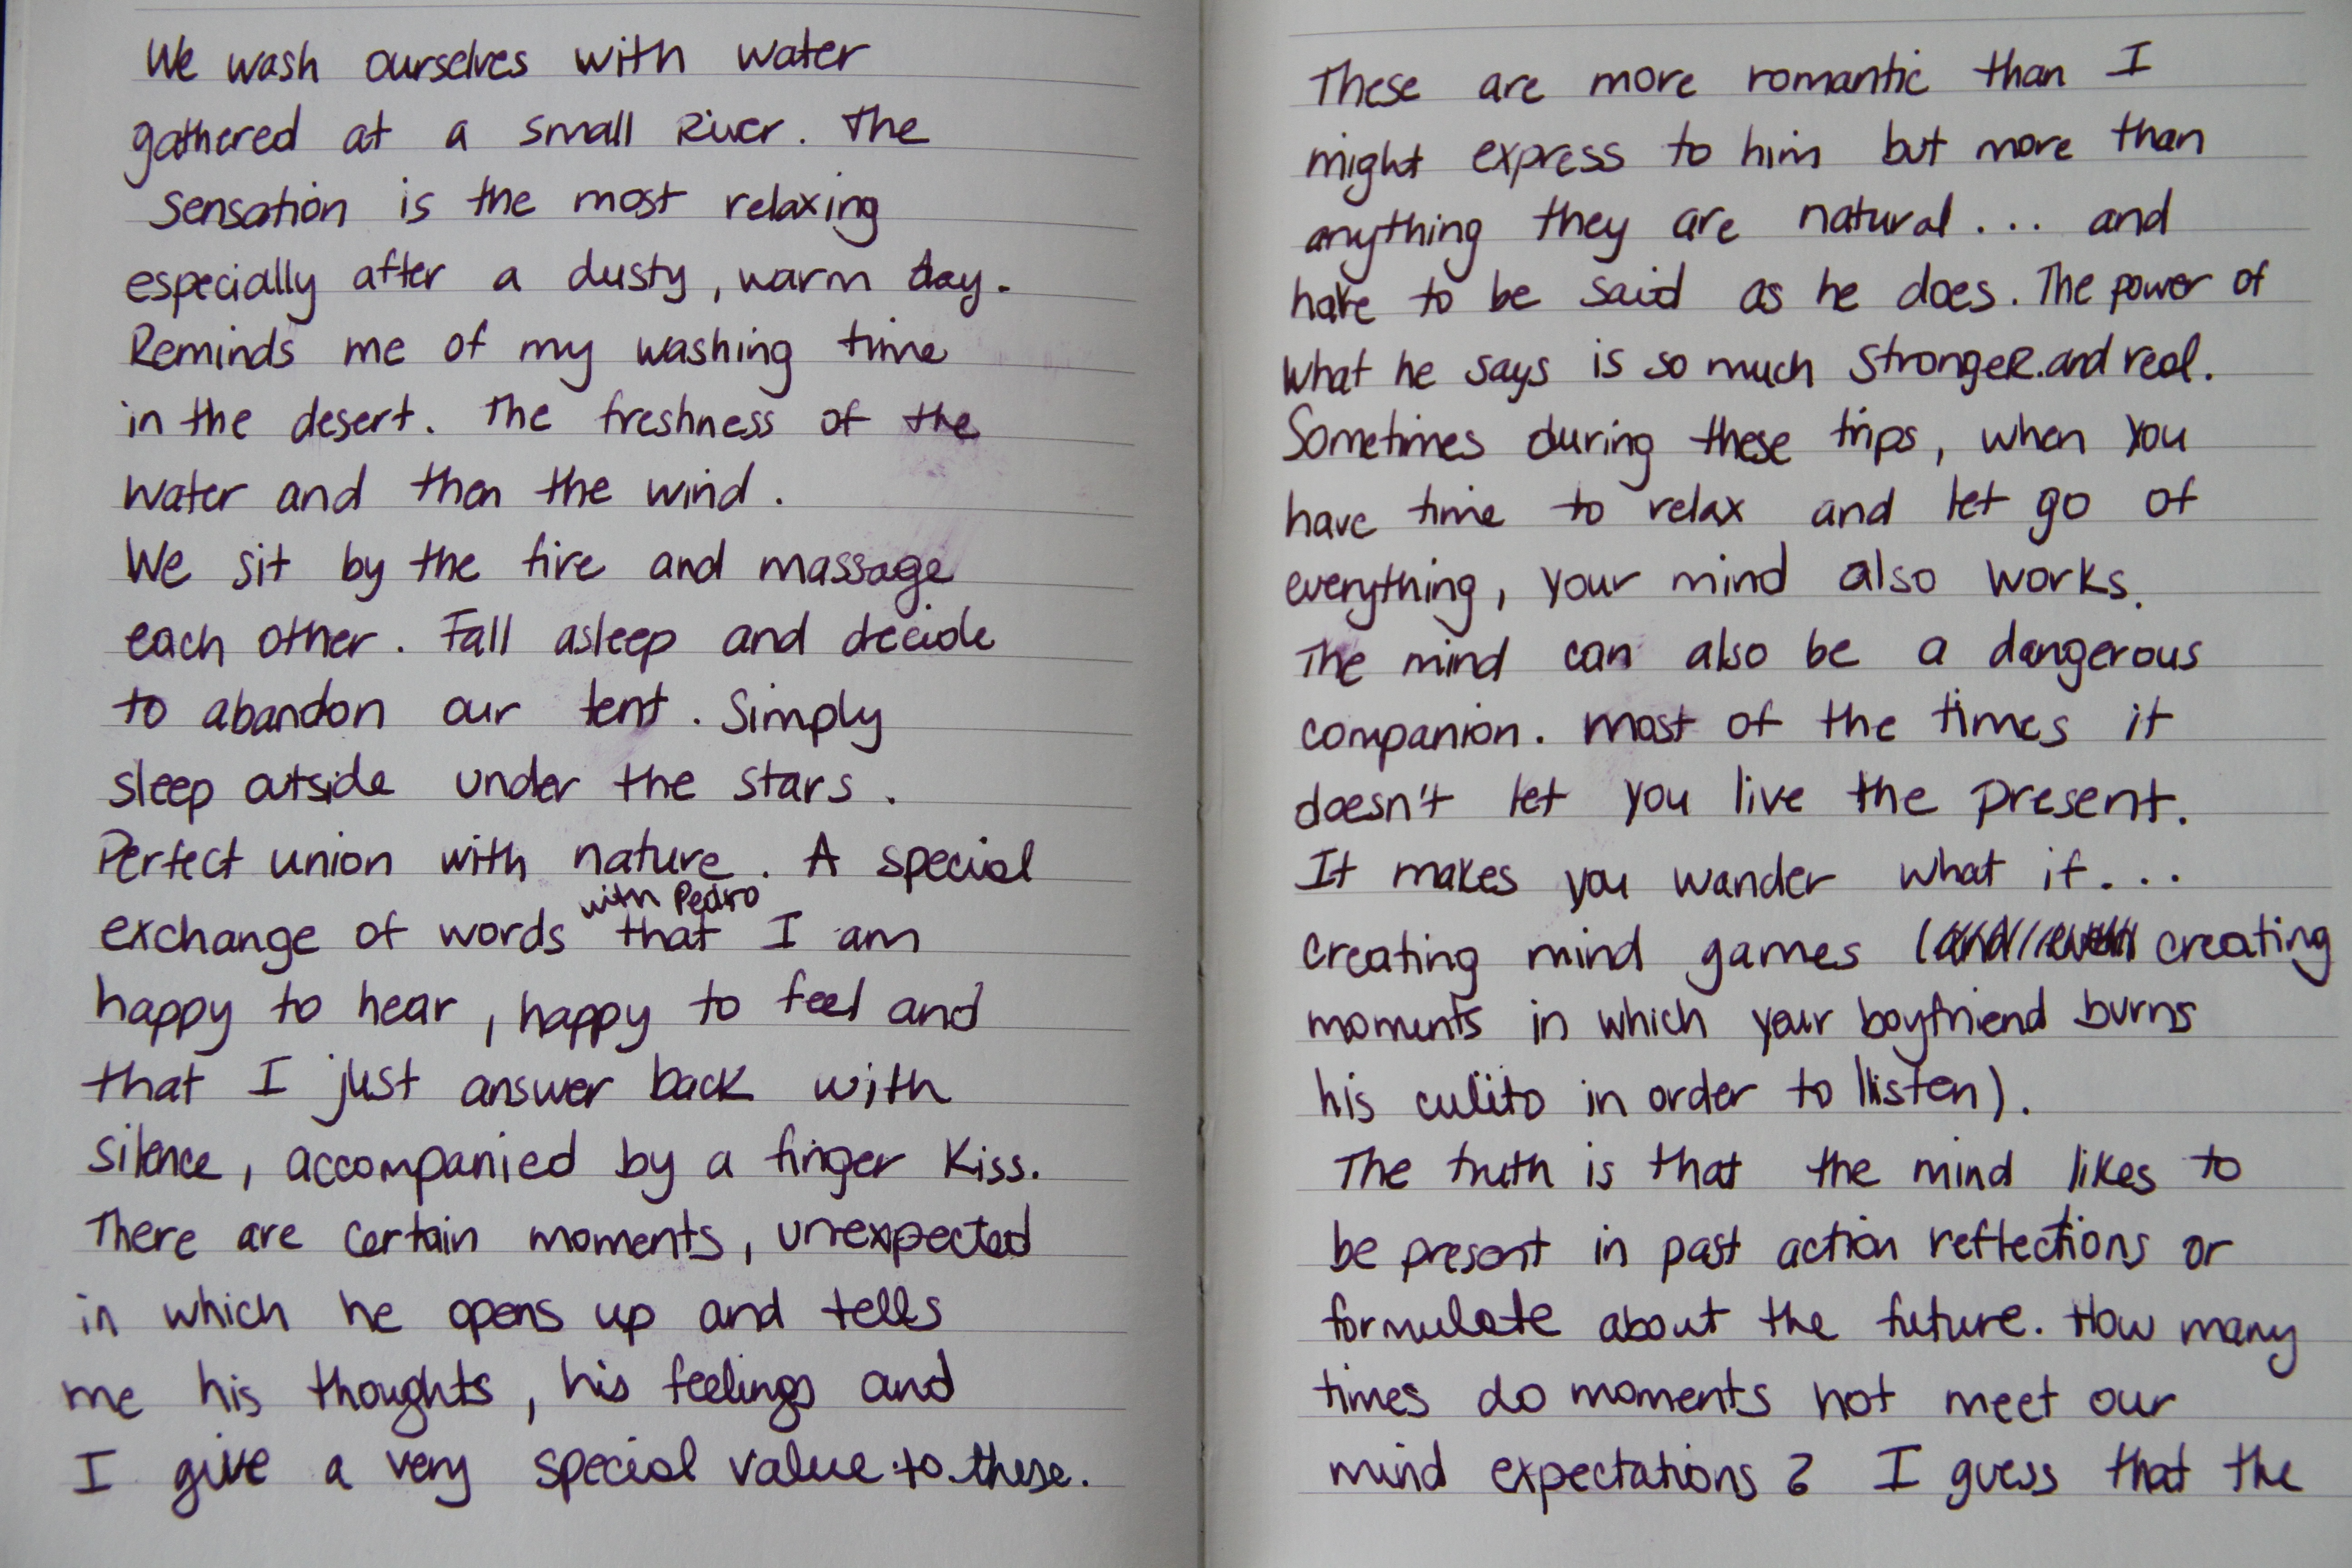 We wash ourselves with water
gathered at a small River. The
sensation is the most relaxing
especially after a dusty, warm day.
Reminds me of my washing time
in the desert. The freshness of the
water and then the wind.
We sit by the fire and massage
each other. Fall asleep and decide
to abandon our tent. Simply
sleep outside under the stars.
Perfect union with nature. A special
with Pedro
exchange of words that I am
happy to hear, happy to feel and
that I just answer back with
silence, accompanied by a finger kiss.
There are certain moments, unexpected
in which he opens up and tells
me his thoughts, his feelings and
I give a very special value to these.
These are more romantic than I
might express to him but more than
anything they are natural... and
have to be said as he does. The power of
what he says is so much stronger.and real.
Sometimes during these trips, when you
have time to relax and let go of
everything, your mind also works.
The mind can also be a dangerous
companion. most of the times it
doesn't let you live the present.
It makes you wander what if...
creating mind games (creating
moments in which your boyfriend burns
his culito in order to listen).
The truth is that the mind likes to
be present in past action reflections or
formulate about the future. How many
times do moments not meet our
mind expectations? I guess that the